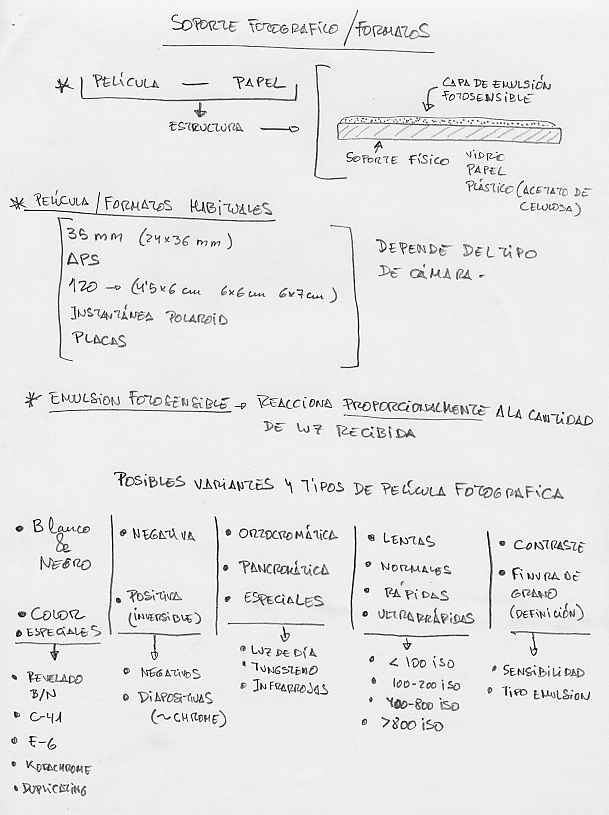 SOPORTE FOTOGRAFICO / FORMATOS
* PELÍCULA — PAPEL
ESTRUCTURA →
CAPA DE EMULSIÓN
FOTOSENSIBLE
SOPORTE FÍSICO
VIDRIO
PAPEL
PLÁSTICO (ACETATO DE
CELULOSA)
* PELÍCULA / FORMATOS HABITUALES
35 mm (24x36 mm)
APS
120 → (4'5x6 cm 6x6 cm 6x7 cm)
INSTANTÁNEA POLAROID
PLACAS
DEPENDE DEL TIPO
DE CÁMARA -
* EMULSION FOTOSENSIBLE → REACCIONA PROPORCIONALMENTE A LA CANTIDAD
DE LUZ RECIBIDA
POSIBLES VARIANTES Y TIPOS DE PELÍCULA FOTOGRAFICA
• Blanco
&
NEGRO
• COLOR
• ESPECIALES
• REVELADO
B/N
• C-41
• E-6
• KODACHROME
• DUPLICATING
• NEGATIVA
• POSITIVA
(INVERSIBLE)
• NEGATIVOS
• DIAPOSITIVAS
(~CHROME)
• ORTOCROMÁTICA
• PANCROMÁTICA
• ESPECIALES
• LUZ DE DÍA
• TUNGSTENO
• INFRARROJAS
• LENTAS
• NORMALES
• RÁPIDAS
• ULTRARRÁPIDAS
• < 100 ISO
• 100-200 ISO
• 400-800 ISO
• >800 ISO
• CONTRASTE
• FINURA DE
GRANO
(DEFINICIÓN)
• SENSIBILIDAD
• TIPO EMULSION